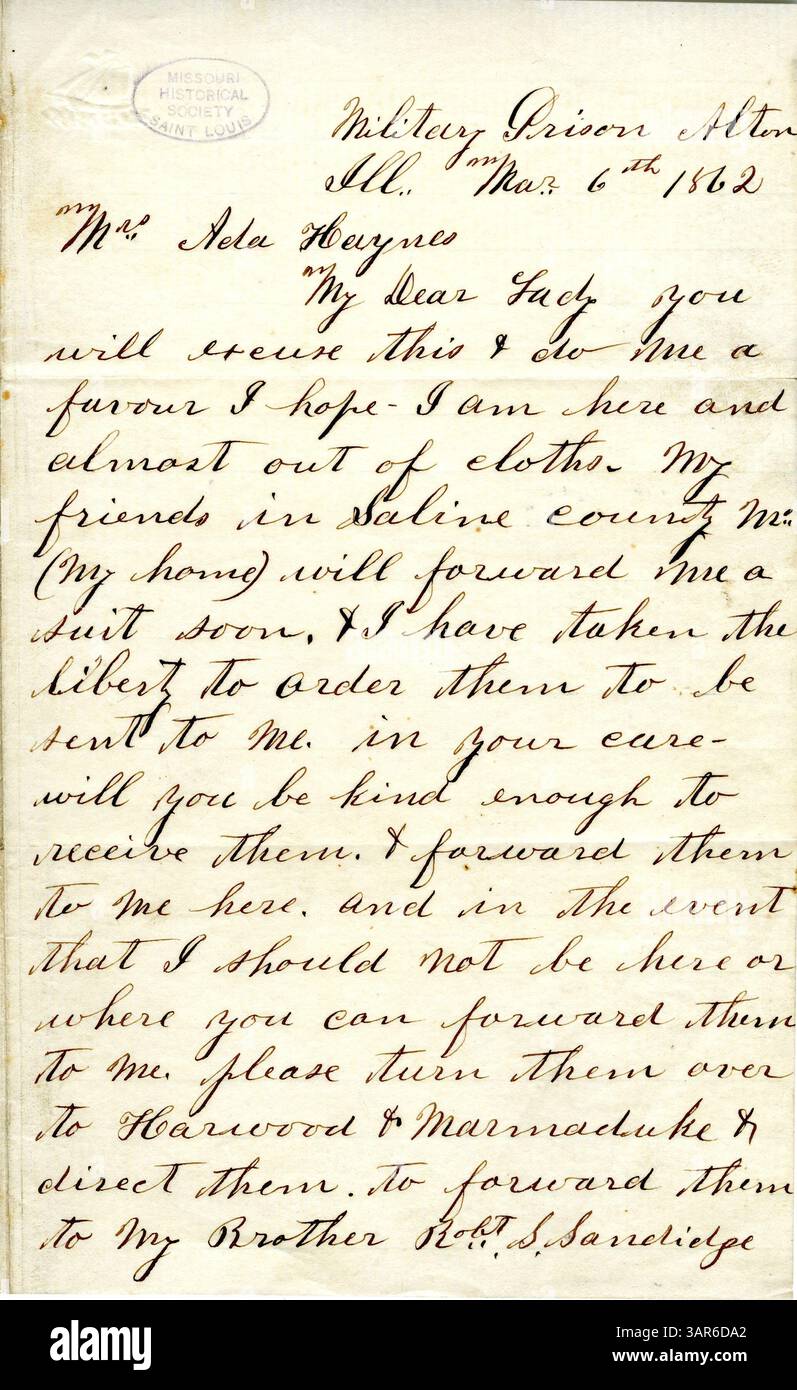 MISSOURI
HISTORICAL
SOCIETY
SAINT LOUIS
Military Prison Alton
Ill. Mar. 6th 1862
Mrs. Ada Haynes
My Dear Lady you
will excuse this & do me a
favour I hope - I am here and
almost out of cloths. My
friends in Saline county Mo.
(My home) will forward me a
suit soon. & I have taken the
liberty to order them to be
sent to me. in your care -
will you be kind enough to
receive them. & forward them
to me here. and in the event
that I should not be here or
where you can forward them
to me. please turn them over
to Harwood & Marmaduke &
direct them. to forward them
to my Brother Robt. S. Sandidge
alamy
Image ID: 3AR6DA2
www.alamy.com